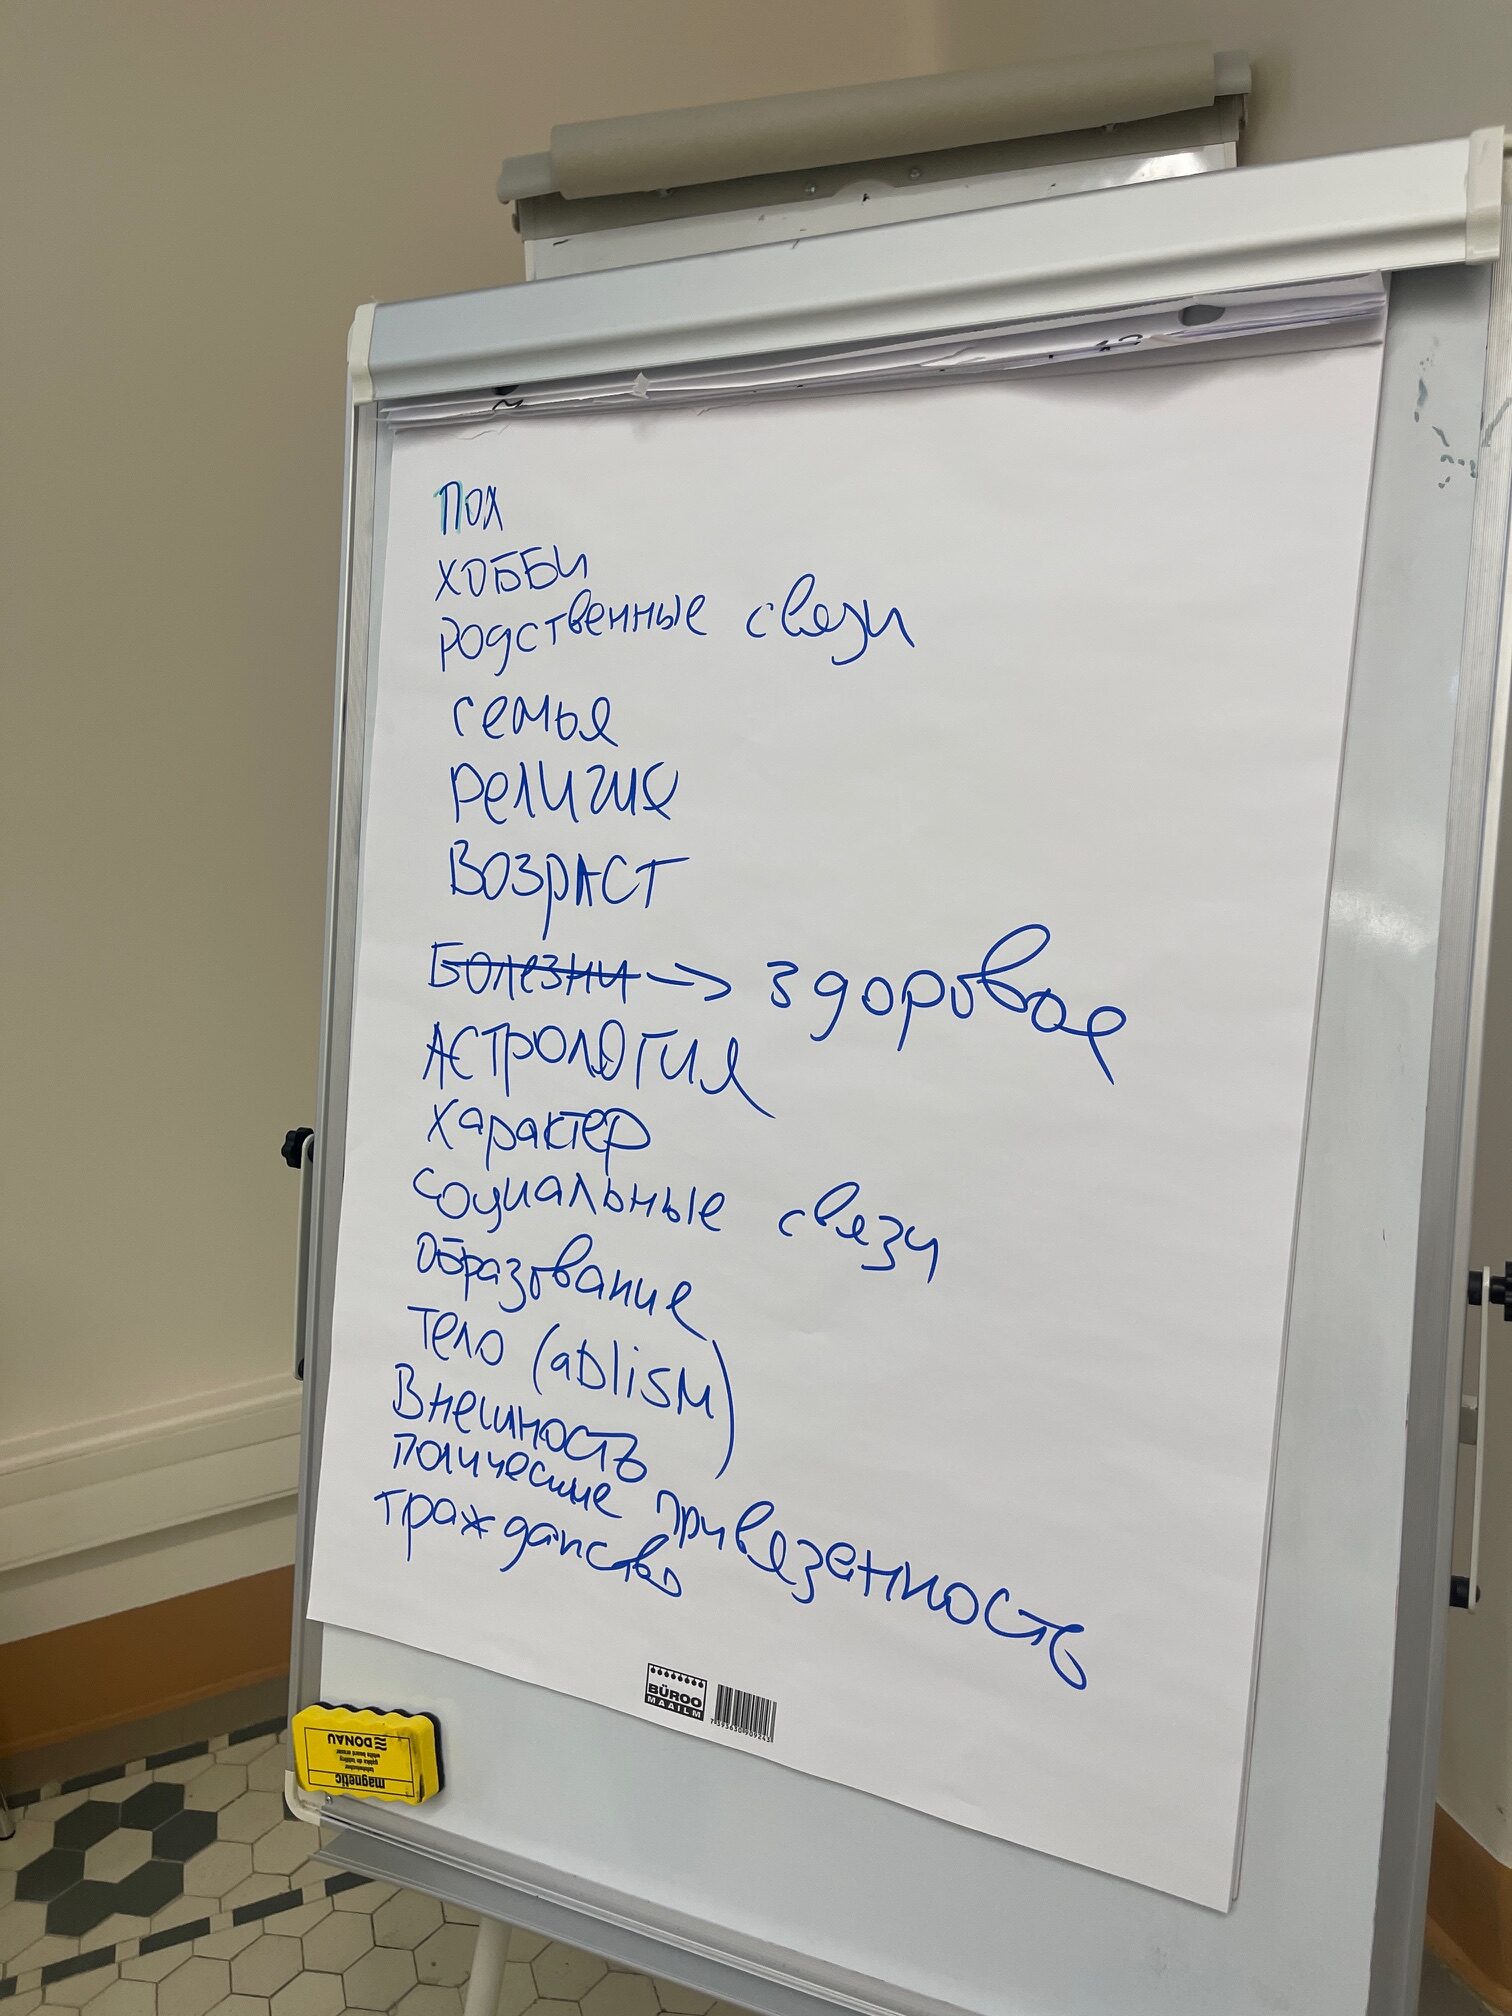 пол
хобби
родственные связи
семья
религия
возраст
Болезни → здоровье
Астрология
характер
социальные связи
образование
тело (ablism)
Внешность
привязенность
гражданство
BÜROO
MAAILM
magnetic
DONAU